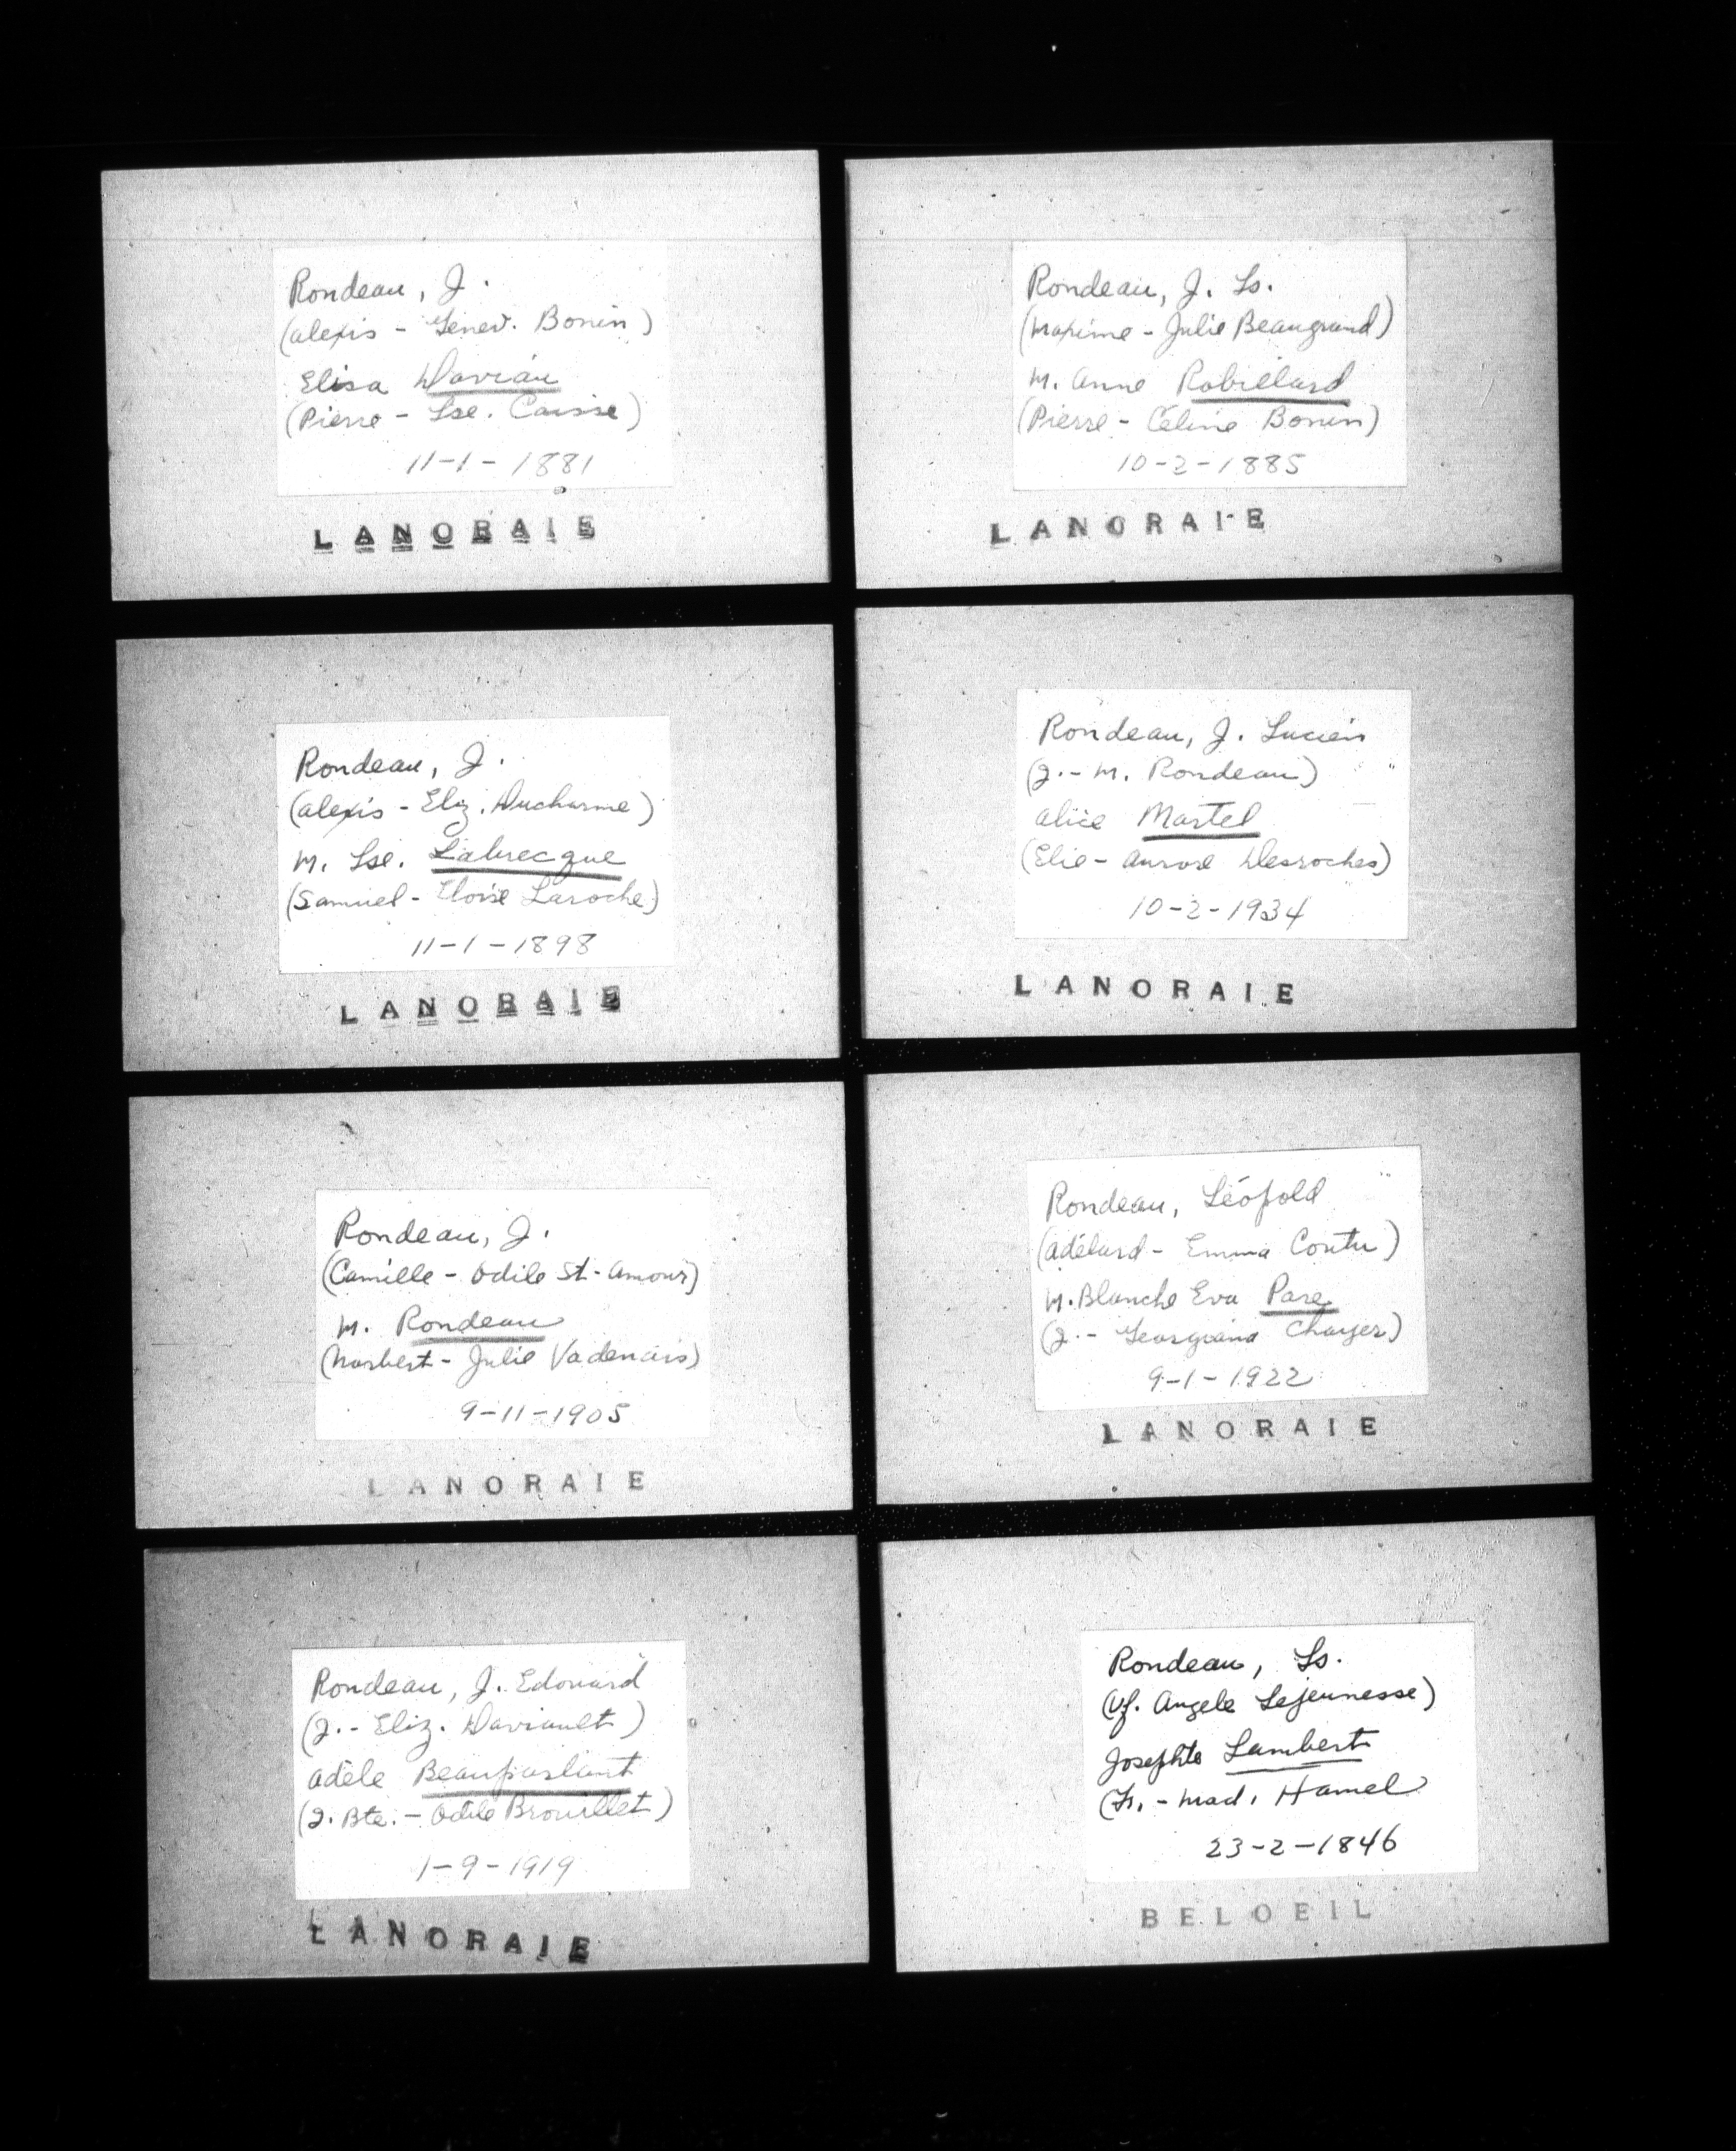 Rondeau, J.
(Alexis - Genev. Bonin)
Elisa Daviau
(Pierre - Lse. Caisse)
11-1-1881
LANORAIE
Rondeau, J.
(Alexis - Eliz. Ducharme)
M. Lse. Labrecque
(Samuel - Eloise Laroche)
11-1-1898
LANORAIE
Rondeau, J.
(Camille - Odile St-Amour)
M. Rondeau
(Norbert - Julie Vadenais)
9-11-1905
LANORAIE
Rondeau, J. Edouard
(J. - Eliz. Daviault)
Adèle Beauparlant
(J. Bte. - Odile Brouillet)
1-9-1919
LANORAIE
Rondeau, J. Ls.
(Maxime - Julie Beaugrand)
M. Anne Robillard
(Pierre - Céline Bonin)
10-2-1885
LANORAIE
Rondeau, J. Lucien
(J. - M. Rondeau)
Alice Martel
(Elie - Aurore Desroches)
10-2-1934
LANORAIE
Rondeau, Léopold
(Adélard - Emma Coutu)
M. Blanche Eva Pare
(J. - Georgiana Chayer)
9-1-1922
LANORAIE
Rondeau, Ls.
(Vf. Angele Lejeunesse)
Josephte Lambert
(Fr. - Mad. Hamel
23-2-1846
BELOEIL